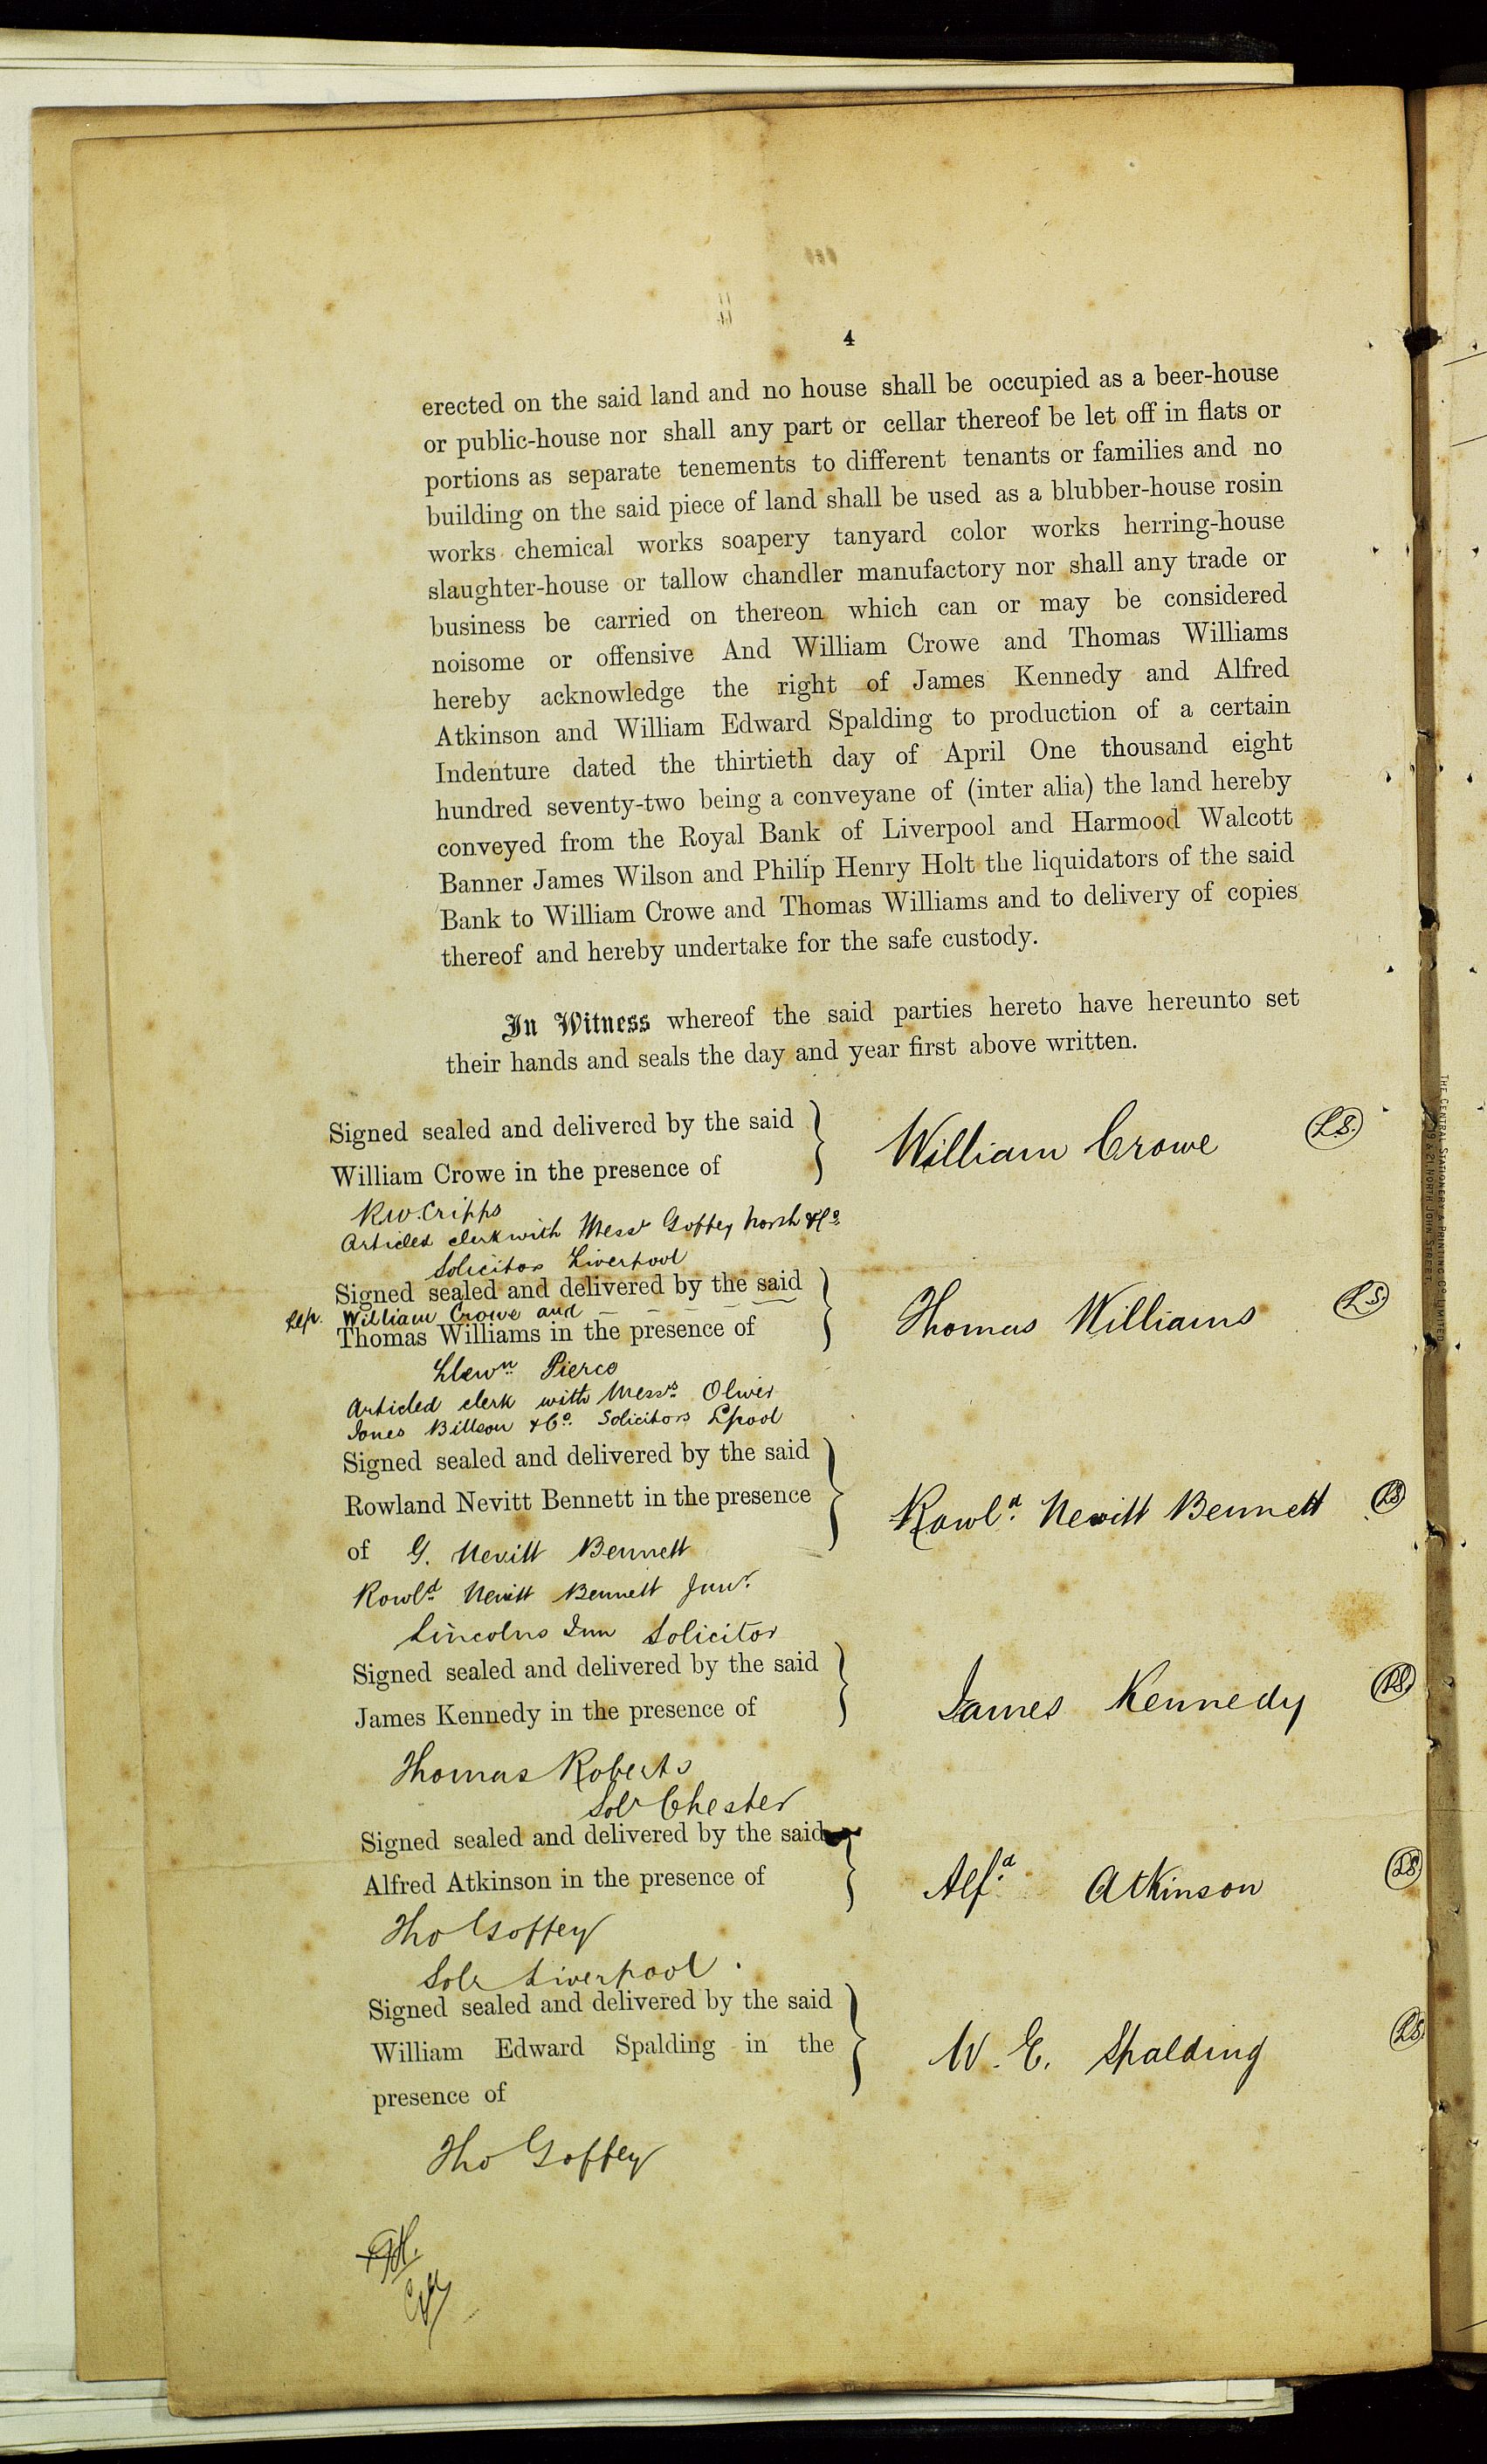 4
erected on the said land and no house shall be occupied as a beer-house
or public-house nor shall any part or cellar thereof be let off in flats or
portions as separate tenements to different tenants or families and no
building on the said piece of land shall be used as a blubber-house rosin
works chemical works soapery tanyard color works herring-house
slaughter-house or tallow chandler manufactory nor shall any trade or
business be carried on thereon which can or may be considered
noisome or offensive And William Crowe and Thomas Williams
hereby acknowledge the right of James Kennedy and Alfred
Atkinson and William Edward Spalding to production of a certain
Indenture dated the thirtieth day of April One thousand eight
hundred seventy-two being a conveyane of (inter alia) the land hereby
conveyed from the Royal Bank of Liverpool and Harmood Walcott
Banner James Wilson and Philip Henry Holt the liquidators of the said
Bank to William Crowe and Thomas Williams and to delivery of copies
thereof and hereby undertake for the safe custody.
In Witness whereof the said parties hereto have hereunto set
their hands and seals the day and year first above written.
Signed sealed and delivered by the said
William Crowe in the presence of
William Crowe L.S.
R.W. Cripps
Articled clerk with Messrs Goffey North & Co.
Solicitors Liverpool
Signed sealed and delivered by the said
William Crowe and
Thomas Williams in the presence of
Thomas Williams LS
Llewn. Pierce
Articled clerk with Messrs. Oliver
Jones Billson & Co. Solicitors Lpool
Signed sealed and delivered by the said
Rowland Nevitt Bennett in the presence
Rowld. Nevitt Bennett LS
of G. Nevitt Bennett
Rowld. Nevitt Bennett Junr.
Lincolns Inn Solicitor
Signed sealed and delivered by the said
James Kennedy in the presence of
James Kennedy LS
Thomas Roberts
Solr Chester
Signed sealed and delivered by the said
Alfred Atkinson in the presence of
Alfd. Atkinson LS
Tho Goffey
Solr Liverpool.
Signed sealed and delivered by the said
William Edward Spalding in the
presence of
W. E. Spalding LS
Tho Goffey
THE CENTRAL STATIONERY & PRINTING CO. LIMITED
NORTH JOHN STREET